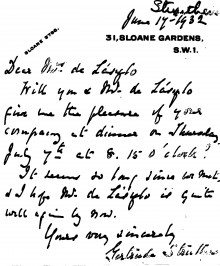 June 17 - 1932
SLOANE 2798.
31, SLOANE GARDENS,
S.W.1.
Dear Mrs. de László
Will you & Mr. de László
give me the pleasure of your
company at dinner on Thursday
July 7th at 8.15 o'clock?
It seems so long since we met,
& I hope Mr. de László is quite
well again by now.
Yours very sincerely
Gertrude